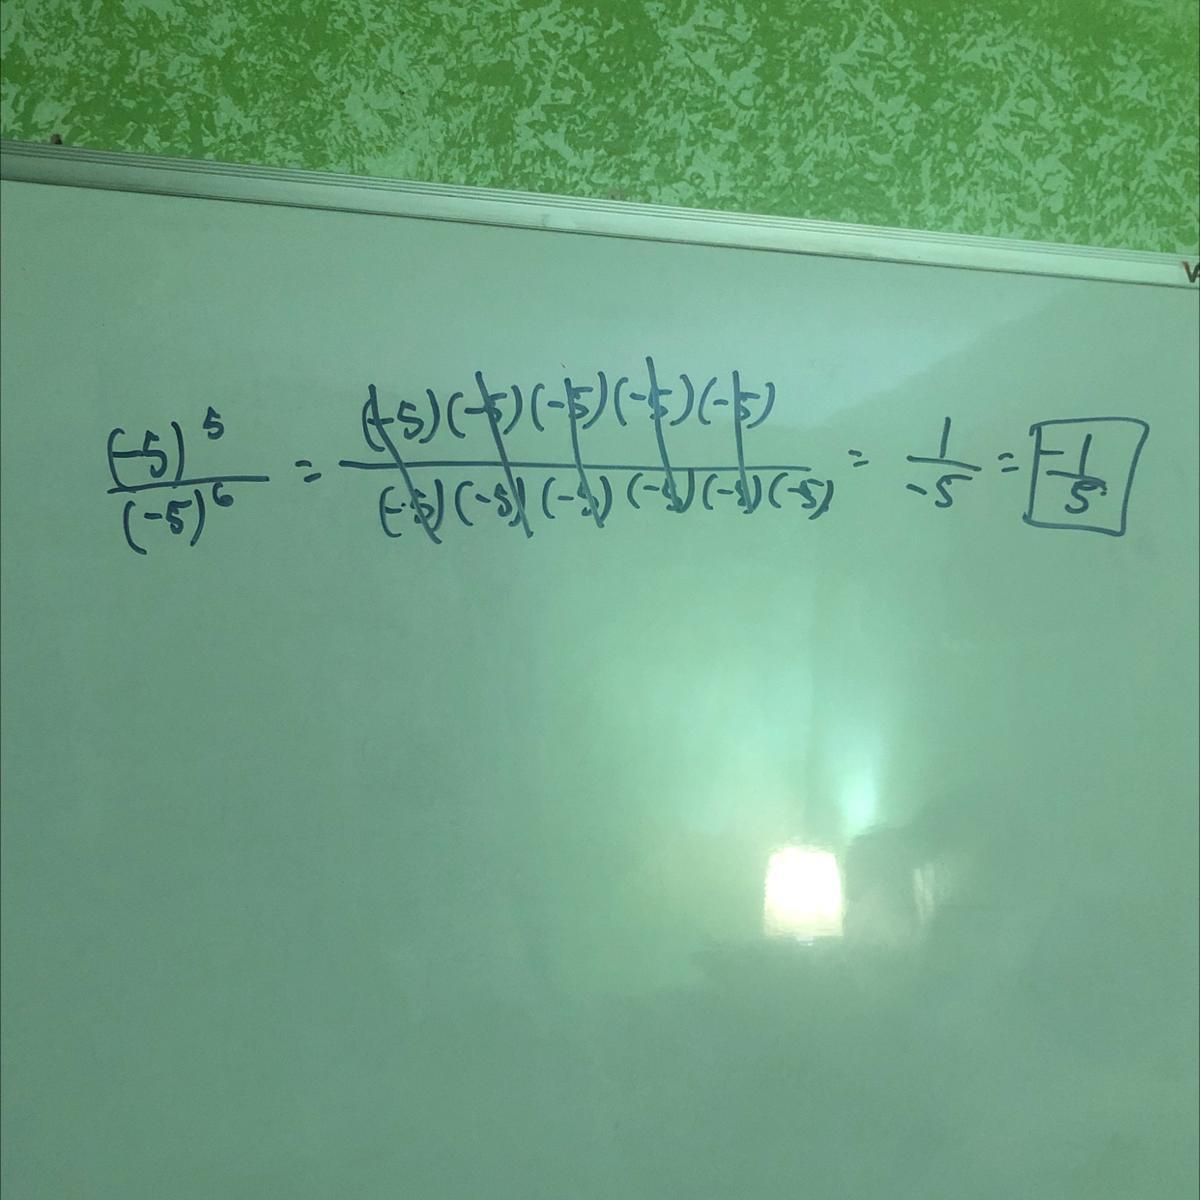 (-5)^5/(-5)^6 = (-5)(-5)(-5)(-5)(-5)/(-5)(-5)(-5)(-5)(-5)(-5) = 1/-5 = -1/5